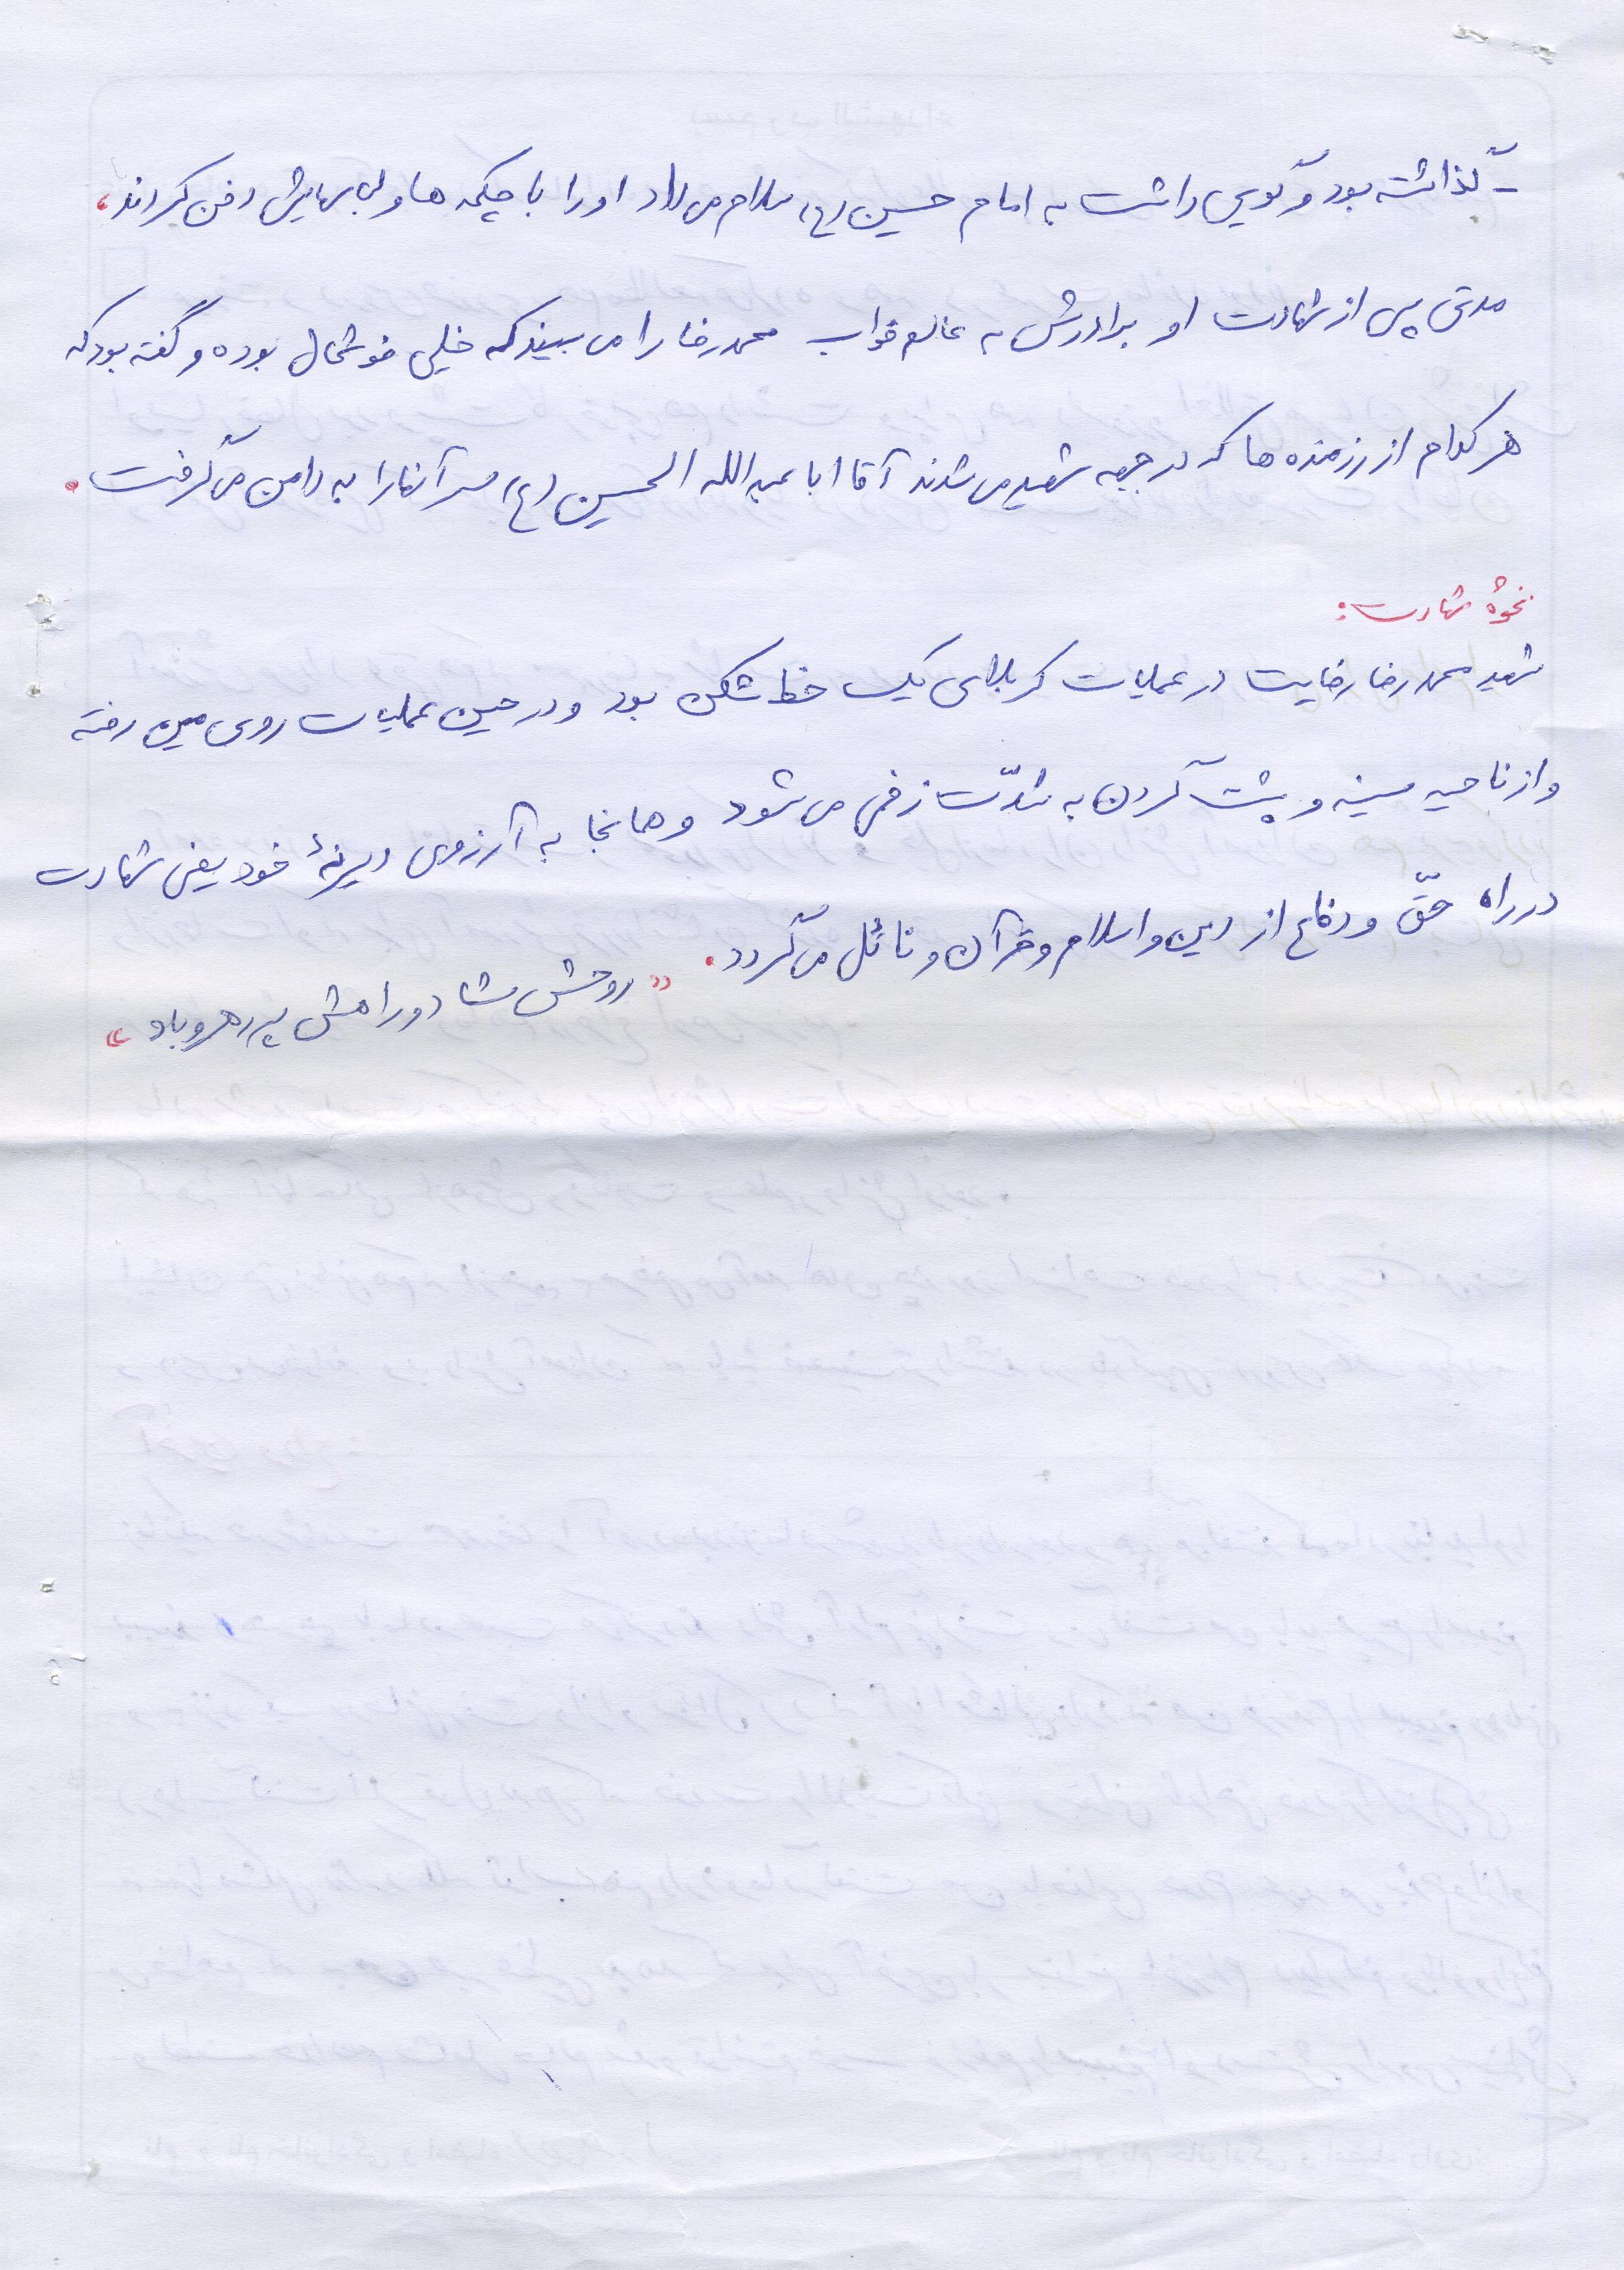 ـ گذاشته بود و گویی داشت به امام حسین (ع) سلام می داد او را با چکمه ها و لباسهایش دفن کردند،
مدتی پس از شهادت او برادرش به عالم خواب محمدرضا را می بیند که خیلی خوشحال بوده و گفته بود که
هر کدام از رزمنده ها که در جبهه شهید می شدند آقا ابا عبدالله الحسین (ع) سر آنها را به دامن می گرفت.
نحوۀ شهادت:
شهید محمدرضا رضایت در عملیات کربلای یک خط شکن بود و در حین عملیات روی مین رفته
و از ناحیه سینه و پشت گردن به شدّت زخمی می شود و همانجا به آرزوی دیرینۀ خود یعنی شهادت
در راه حقّ و دفاع از دین و اسلام و قرآن و نائل می گردد. «روحش شاد و راهش پر رهرو باد»